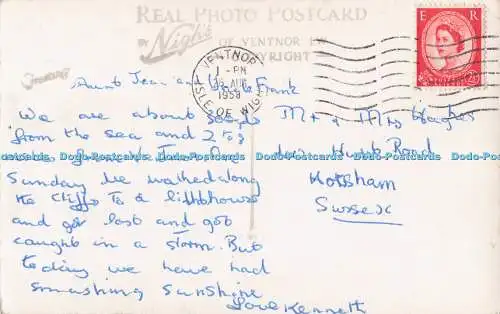 REAL PHOTO POSTCARD
BY Nigh's OF VENTNOR I.W.
COPYRIGHT
VENTNOR
1 - PM
1958
ISLE OF WIGHT
E R
Aunt Jean and Uncle Frank
We are about
from the sea and
Sunday we walked along
the cliffs to a lithhouse
and got lost and got
caught in a storm. But
today we have had
smashing sunshine
Love Kenneth
Mr & Mrs
Road
Horsham
Sussex
Dodo-Postcards Dodo-Postcards Dodo-Postcards Dodo-Postcards